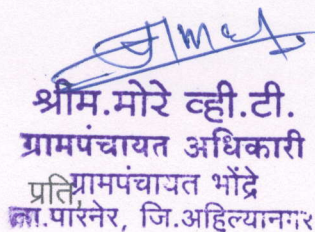 श्रीम.मोरे व्ही.टी.
ग्रामपंचायत अधिकारी
प्रति, ग्रामपंचायत भोंद्रे
ता.पारनेर, जि.अहिल्यानगर